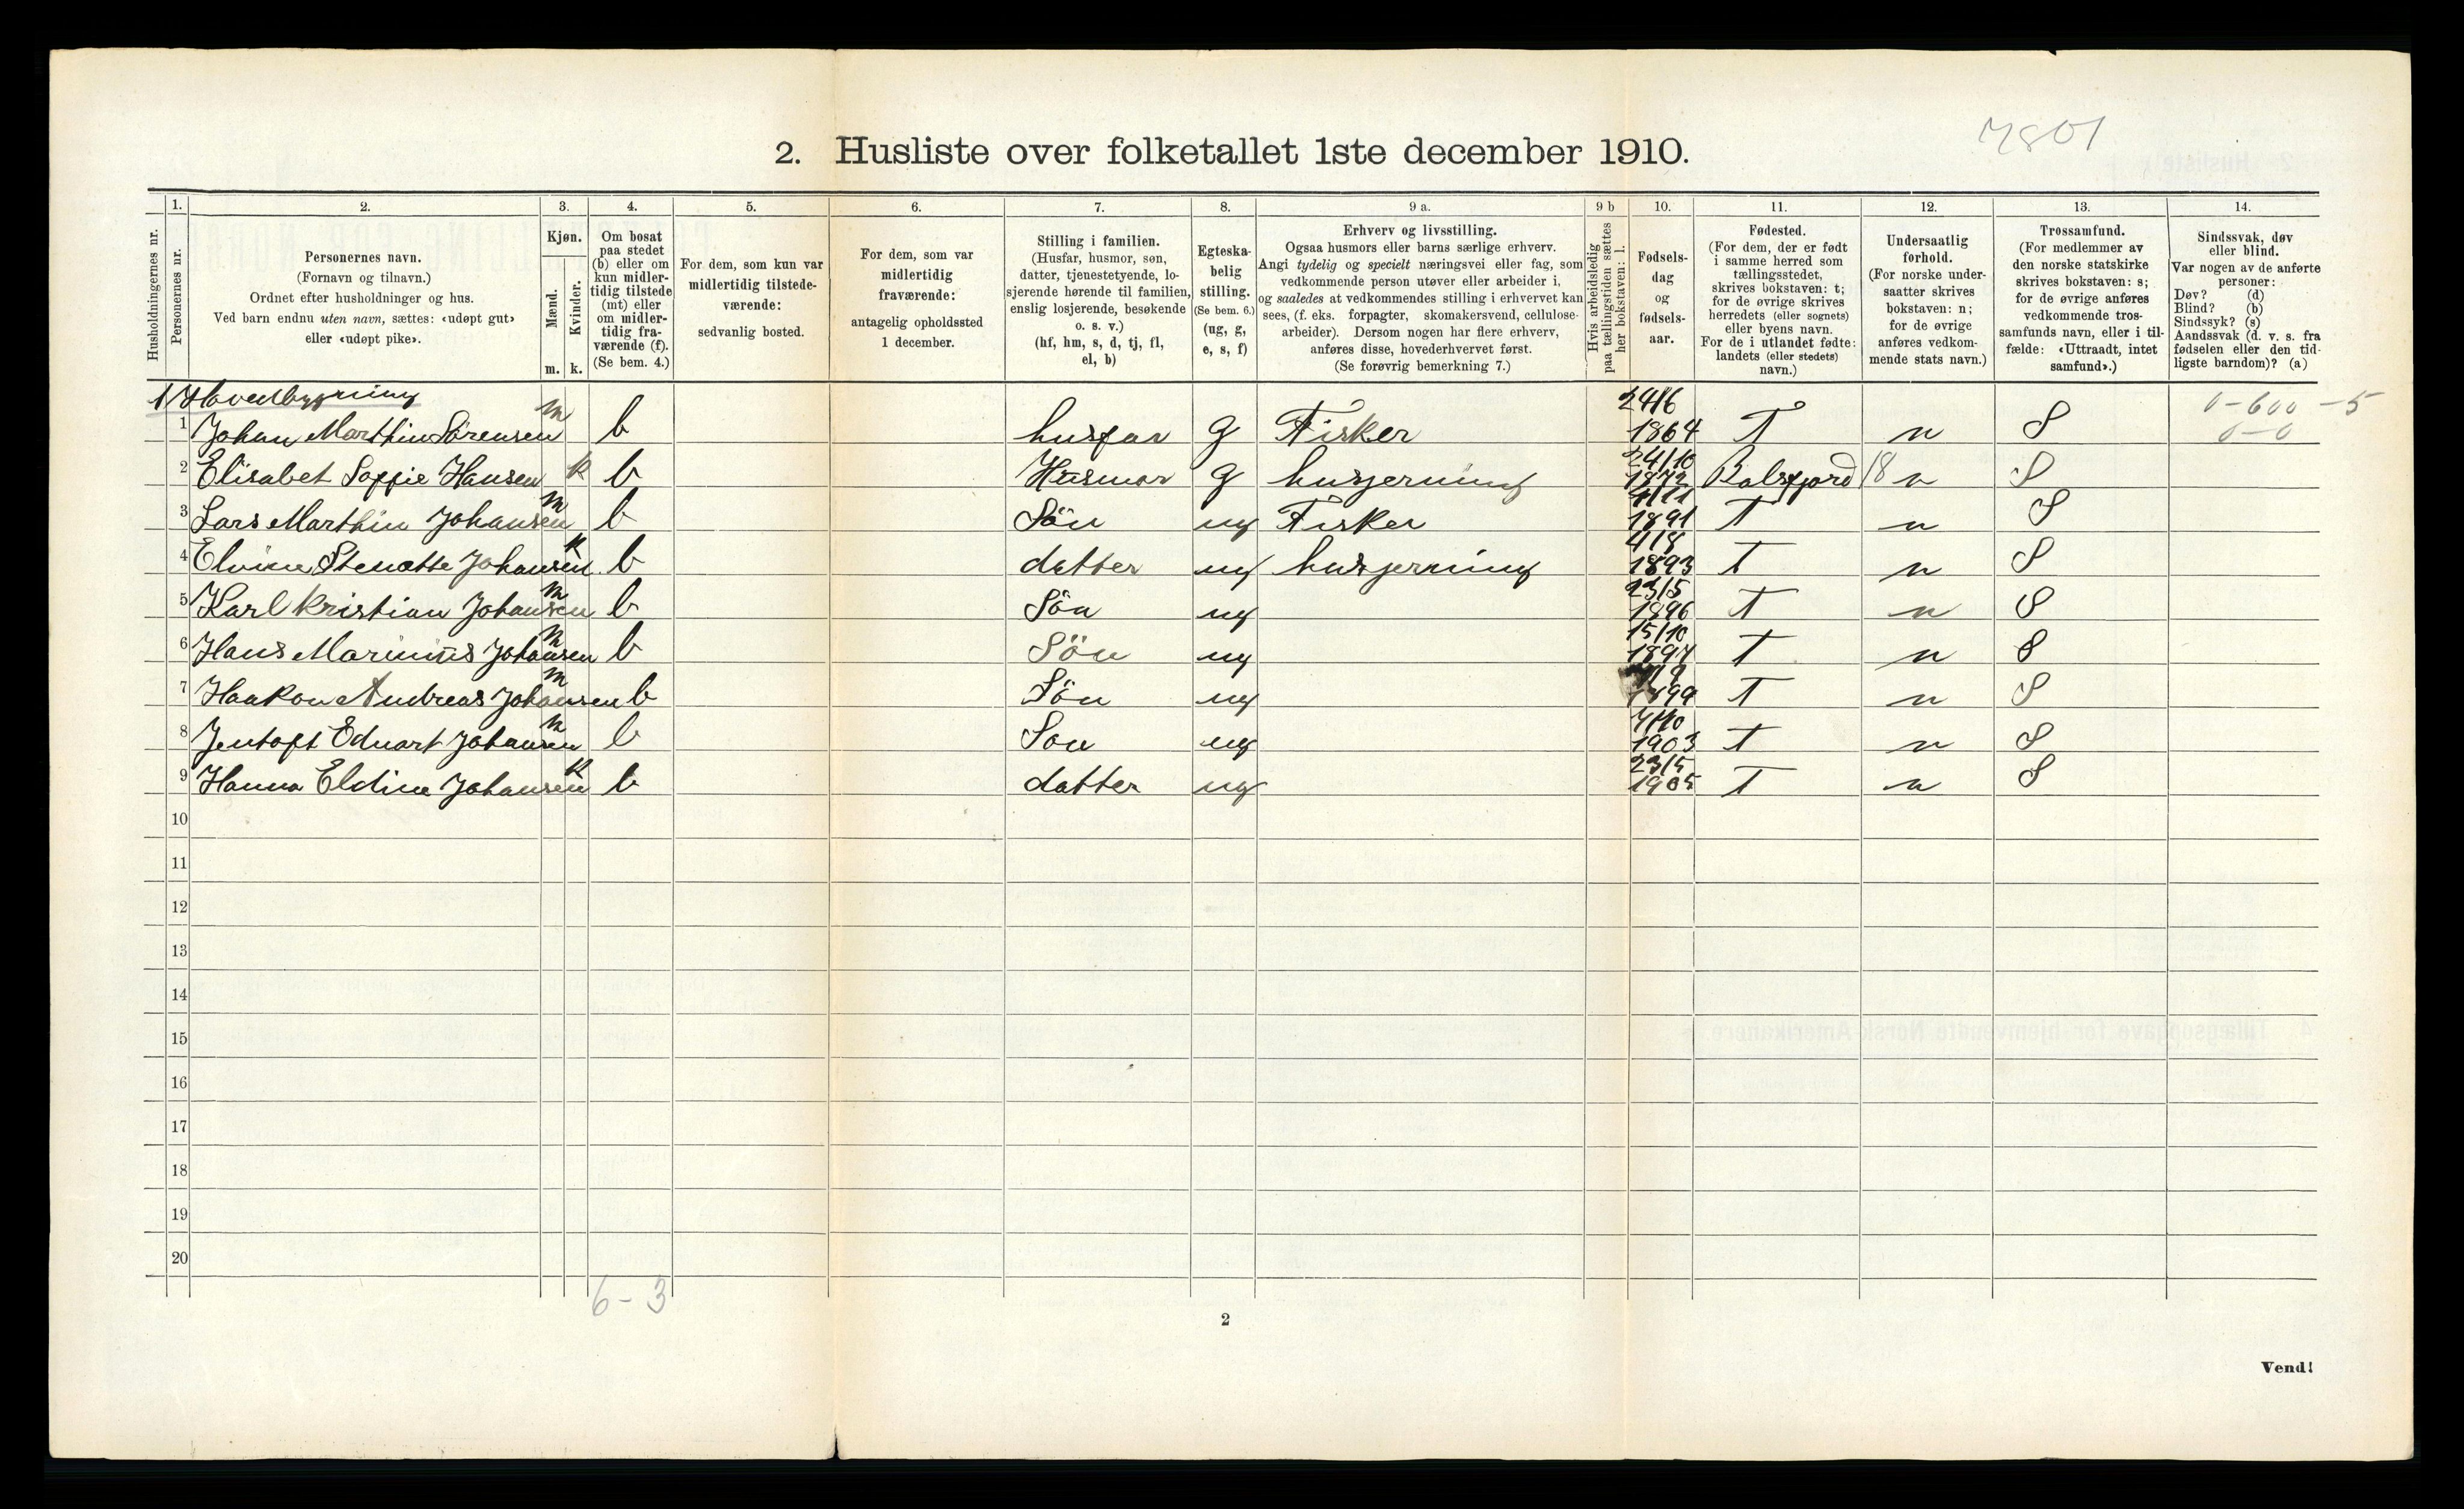 7801
2. Husliste over folketallet 1ste december 1910.
1. 2. 3. 4. 5. 6. 7. 8. 9 a. 9 b 10. 11. 12. 13. 14.
Husholdningernes nr.
Personernes nr.
Personernes navn.
(Fornavn og tilnavn.)
Ordnet efter husholdninger og hus.
Ved barn endnu uten navn, sættes: «udøpt gut»
eller «udøpt pike».
Kjøn.
Mænd.
Kvinder.
m. k.
Om bosat
paa stedet
(b) eller om
kun midler-
tidig tilstede
(mt) eller
om midler-
tidig fra-
værende (f).
(Se bem. 4.)
For dem, som kun var
midlertidig tilstede-
værende:
sedvanlig bosted.
For dem, som var
midlertidig
fraværende:
antagelig opholdssted
1 december.
Stilling i familien.
(Husfar, husmor, søn,
datter, tjenestetyende, lo-
sjerende hørende til familien,
enslig losjerende, besøkende
o. s. v.)
(hf, hm, s, d, tj, fl,
el, b)
Egteska-
belig
stilling.
(Se bem. 6.)
(ug, g,
e, s, f)
Erhverv og livsstilling.
Ogsaa husmors eller barns særlige erhverv.
Angi tydelig og specielt næringsvei eller fag, som
vedkommende person utøver eller arbeider i,
og saaledes at vedkommendes stilling i erhvervet kan
sees, (f. eks. forpagter, skomakersvend, cellulose-
arbeider). Dersom nogen har flere erhverv,
anføres disse, hovederhvervet først.
(Se forøvrig bemerkning 7.)
Hvis arbeidsledig
paa tællingstiden sættes
her bokstaven: l.
Fødsels-
dag
og
fødsels-
aar.
Fødested.
(For dem, der er født
i samme herred som
tællingsstedet,
skrives bokstaven: t;
for de øvrige skrives
herredets (eller sognets)
eller byens navn.
For de i utlandet fødte:
landets (eller stedets)
navn.)
Undersaatlig
forhold.
(For norske under-
saatter skrives
bokstaven: n;
for de øvrige
anføres vedkom-
mende stats navn.)
Trossamfund.
(For medlemmer av
den norske statskirke
skrives bokstaven: s;
for de øvrige anføres
vedkommende tros-
samfunds navn, eller i til-
fælde: «Uttraadt, intet
samfund».)
Sindssvak, døv
eller blind.
Var nogen av de anførte
personer:
Døv? (d)
Blind? (b)
Sindssyk? (s)
Aandssvak (d. v. s. fra
fødselen eller den tid-
ligste barndom)? (a)
1 Hovedbygning
0-600-5
0-0
1 Johan Marthin Sörensen m b husfar g Fisker 24/6 1864 T n S
2 Elisabet Soffie Hansen k b Husmor g husjerning 24/10 1872 Balsfjord 18 n S
3 Lars Marthin Johansen m b Sön ug Fisker 4/11 1891 T n S
4 Elvine Stenette Johansen k b datter ug husjerning 4/8 1893 T n S
5 Karl Kristian Johansen m b Sön ug 23/5 1896 T n S
6 Hans Marinius Johansen m b Sön ug 15/10 1897 T n S
7 Haakon Andreas Johansen m b Sön ug 1899 T n S
8 Jentoft Eduart Johansen m b Son ug 7/10 1903 T n S
9 Hanna Eldine Johansen k b datter ug 23/5 1905 T n S
10
11
12
13
14
15
16
17
18
19
20
6-3
2
Vend!